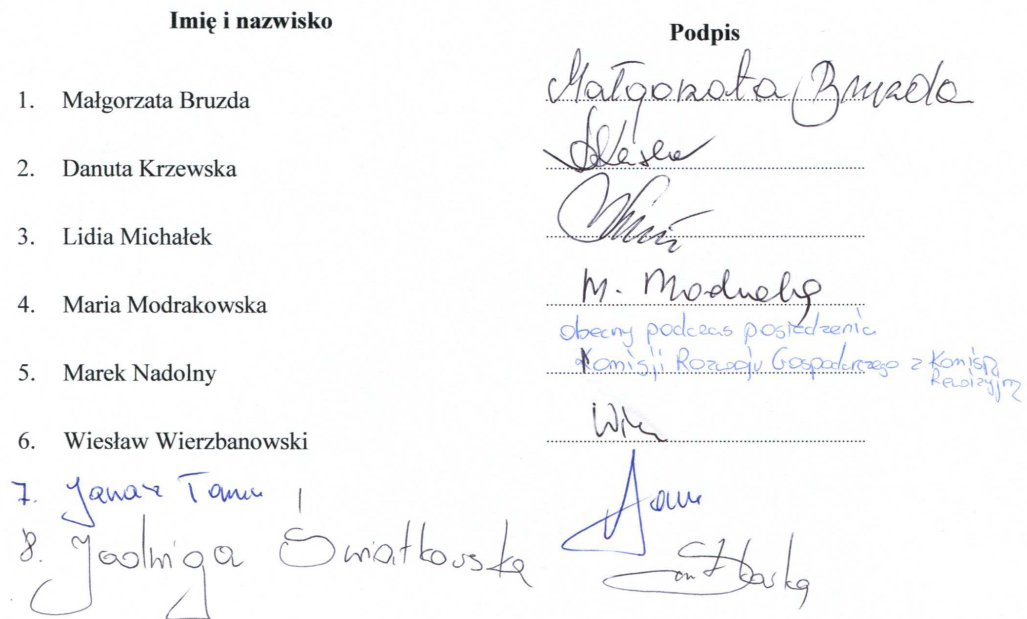 Imię i nazwisko Podpis
1. Małgorzata Bruzda Małgorzata Bruzda
2. Danuta Krzewska
3. Lidia Michałek
4. Maria Modrakowska M. Modra
obecny podczas posiedzenia
5. Marek Nadolny Komisji Rozwoju Gospodarczego z Komisją
Rewizyjną
6. Wiesław Wierzbanowski
7. Janusz
8. Jadwiga Światkowska